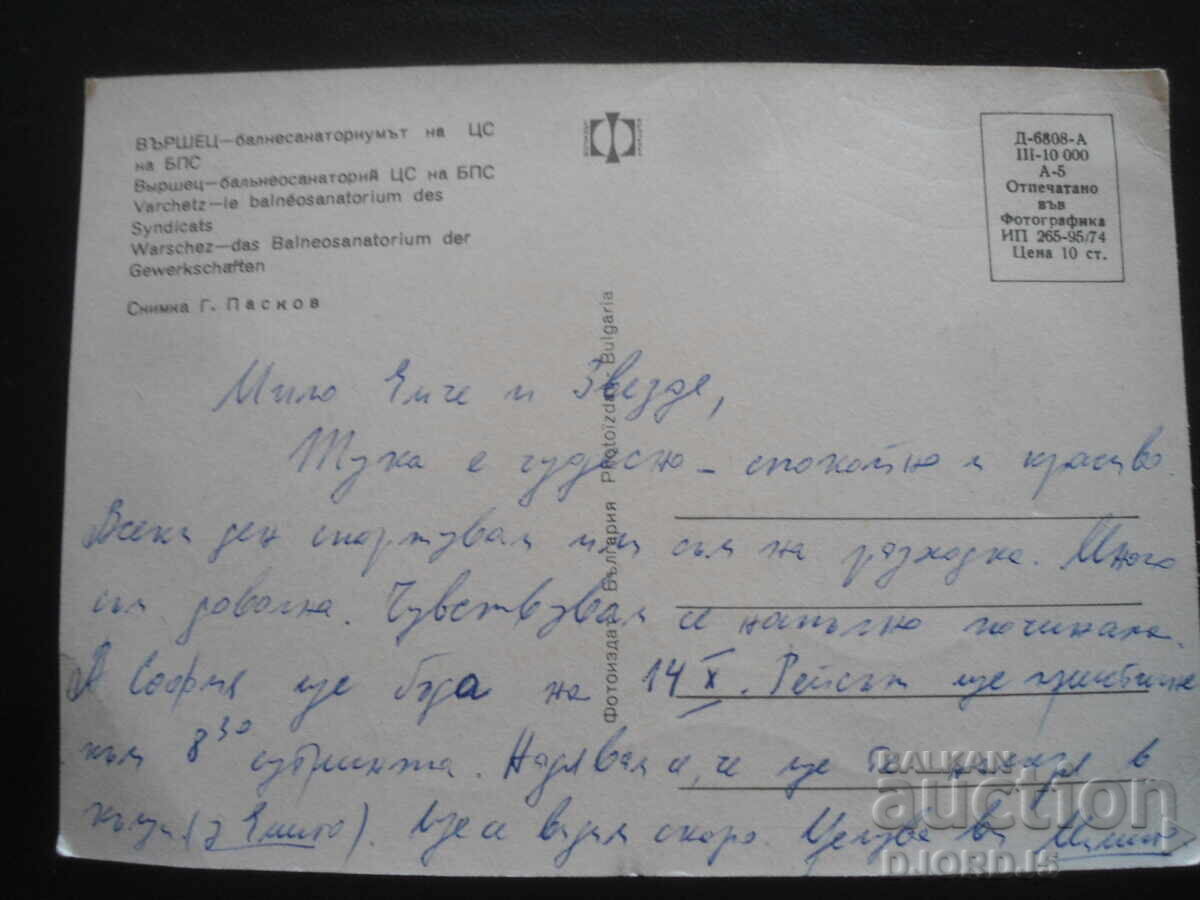 ВЪРШЕЦ—балнесанаториумът на ЦС
на БПС
Выршец—бальнеосанаторий ЦС на БПС
Varchetz—le balnéosanatorium des
Syndicats
Warschez—das Balneosanatorium der
Gewerkschaften
Снимка Г. Пасков
Д-6808-А
III-10 000
А-5
Отпечатано
във
Фотографика
ИП 265-95/74
Цена 10 ст.
Фотоиздат България Photoizdat Bulgaria
Мило Емче и Звезде,
Тука е чудесно – спокойно и красиво.
Всеки ден спортувам или съм на разходка. Много
съм доволна. Чувствувам се напълно починала.
В София ще бъда на 14 X. Рейсът ще пристигне
към 8 30 сутринта. Надявам се, че ще те намеря в
къщи (з Емито). Ще се видим скоро. Целува ви Мимито
BALKAN
auction
DJORDJ5